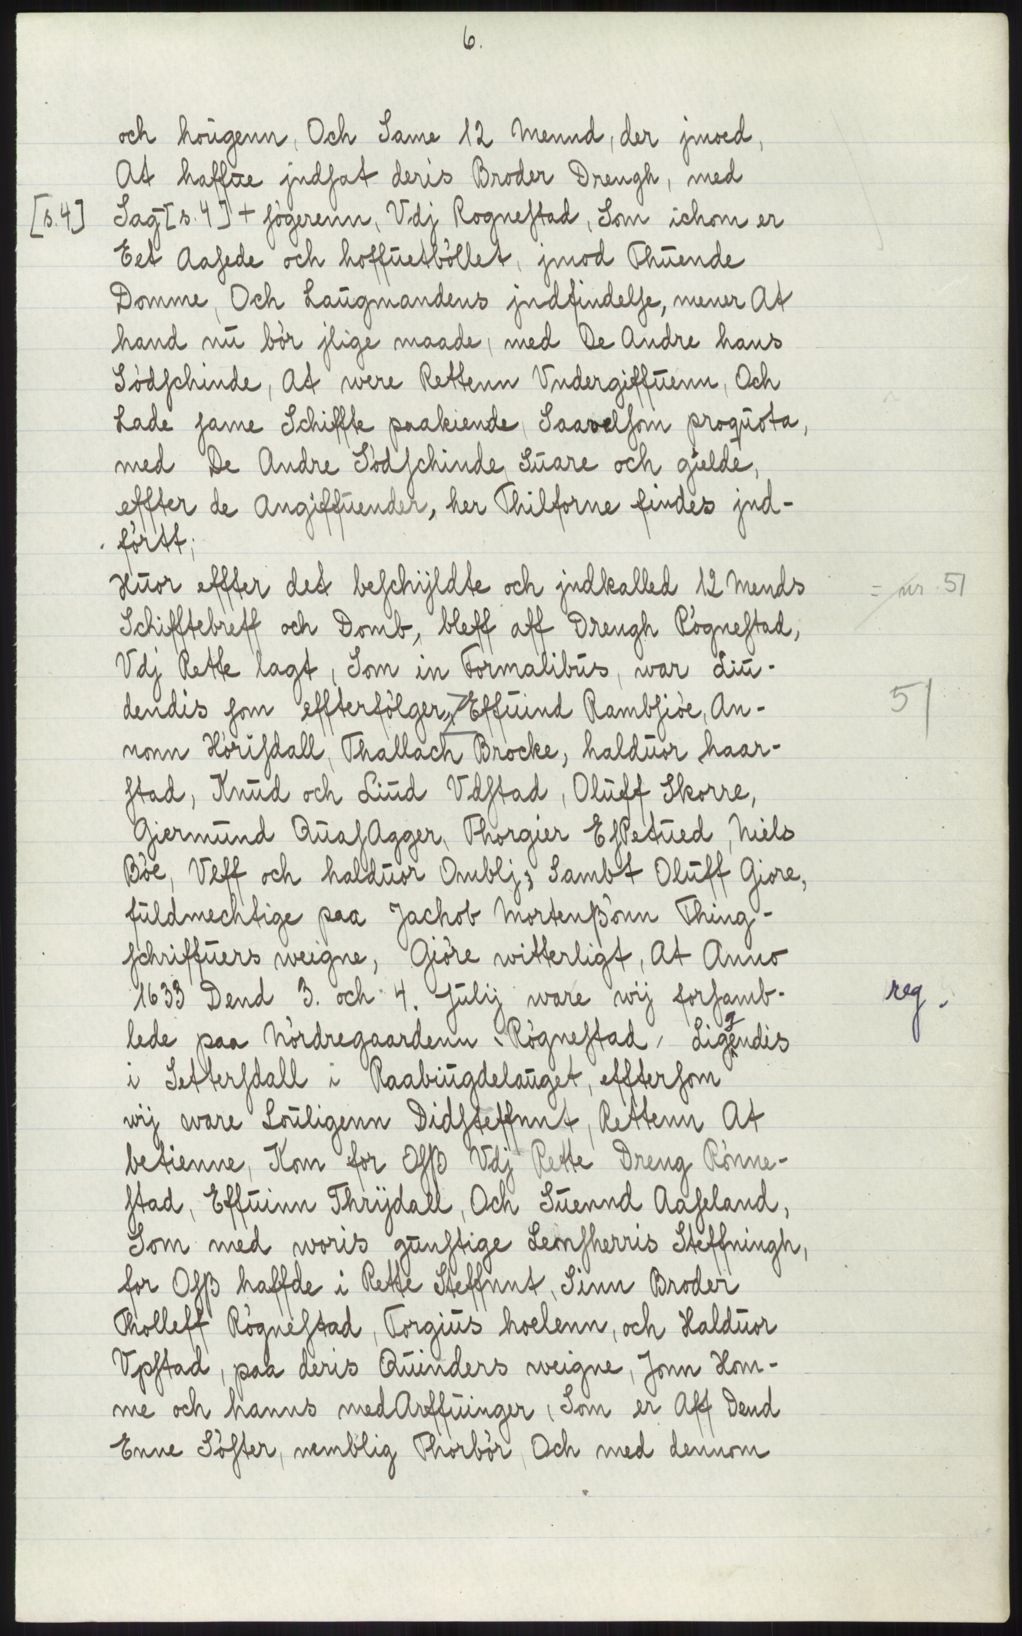 6.
och hougenn, Och Same 12 Mennd, der jmoed,
At haffue jndsat deris Broder Drengh, med
[s.4] Sag-[s.4]+ sögerenn, Vdj Rognestad, Som ichom er
Eet Aasede och hoffuetböllet, jmod Thuende
Domme, Och Laugmandens jndfindelse, mener At
hand nu bör jlige maade, med De Andre hans
Södschinde, At were Rettenn Vndergiffuenn, Och
Lade same Schiffte paakiende, Saavelsom proquota,
med De Andre Södschinde, Suare och gielde,
effter de Angiffuender, her Thilforne findes jnd-
förtt;
Huor effter det beschijldte och jndkalled 12 Mends = nr. 51
Schifftebreff och Domb, bleff aff Drengh Rögnestad,
Vdj Rette lagt, Som in Formalibus, war Liu-
dendis som effterfölger, Effuind Rambsiöe, An- 51
nonn Hörisdall, Thallach Brocke, halduor haar-
stad, Knud och Liud Vdstad, Oluff Skorre,
Giermund QuasAgger, Thorgier EsPetued, Niels
Böe, Veff och halduor Omblj; Sambt Oluff Giore,
fuldmechtige paa Jachob Mortenßönn Thing-
schriffuers weigne, Giöre witterligt, At Anno
1633 Dend 3. och 4. Julij ware wij forsamb- reg.
lede paa Nördregaardenn Rögnestad, Liggendis
i Settersdall i Raabiugdelauget, efftersom
wij ware Louligenn Didsteffnnt, Rettenn At
betienne, Kom for Osß Vdj Rette Dreng Rönne-
stad, Effuinn Thrijdall, Och Suennd Aaseland,
Som med woris gunstige Lensherris Steffningh,
for Osß haffde i Rette Steffnnt, Sinn Broder
Tholleff Rögnestad, Torgius hoelenn, och Halduor
Vpstad, paa deris Quinders weigne, Jonn Hom-
me och hanns medArffuinger, Som er Aff Dend
Enne Söster, nemblig Thorbör, Och med dennom